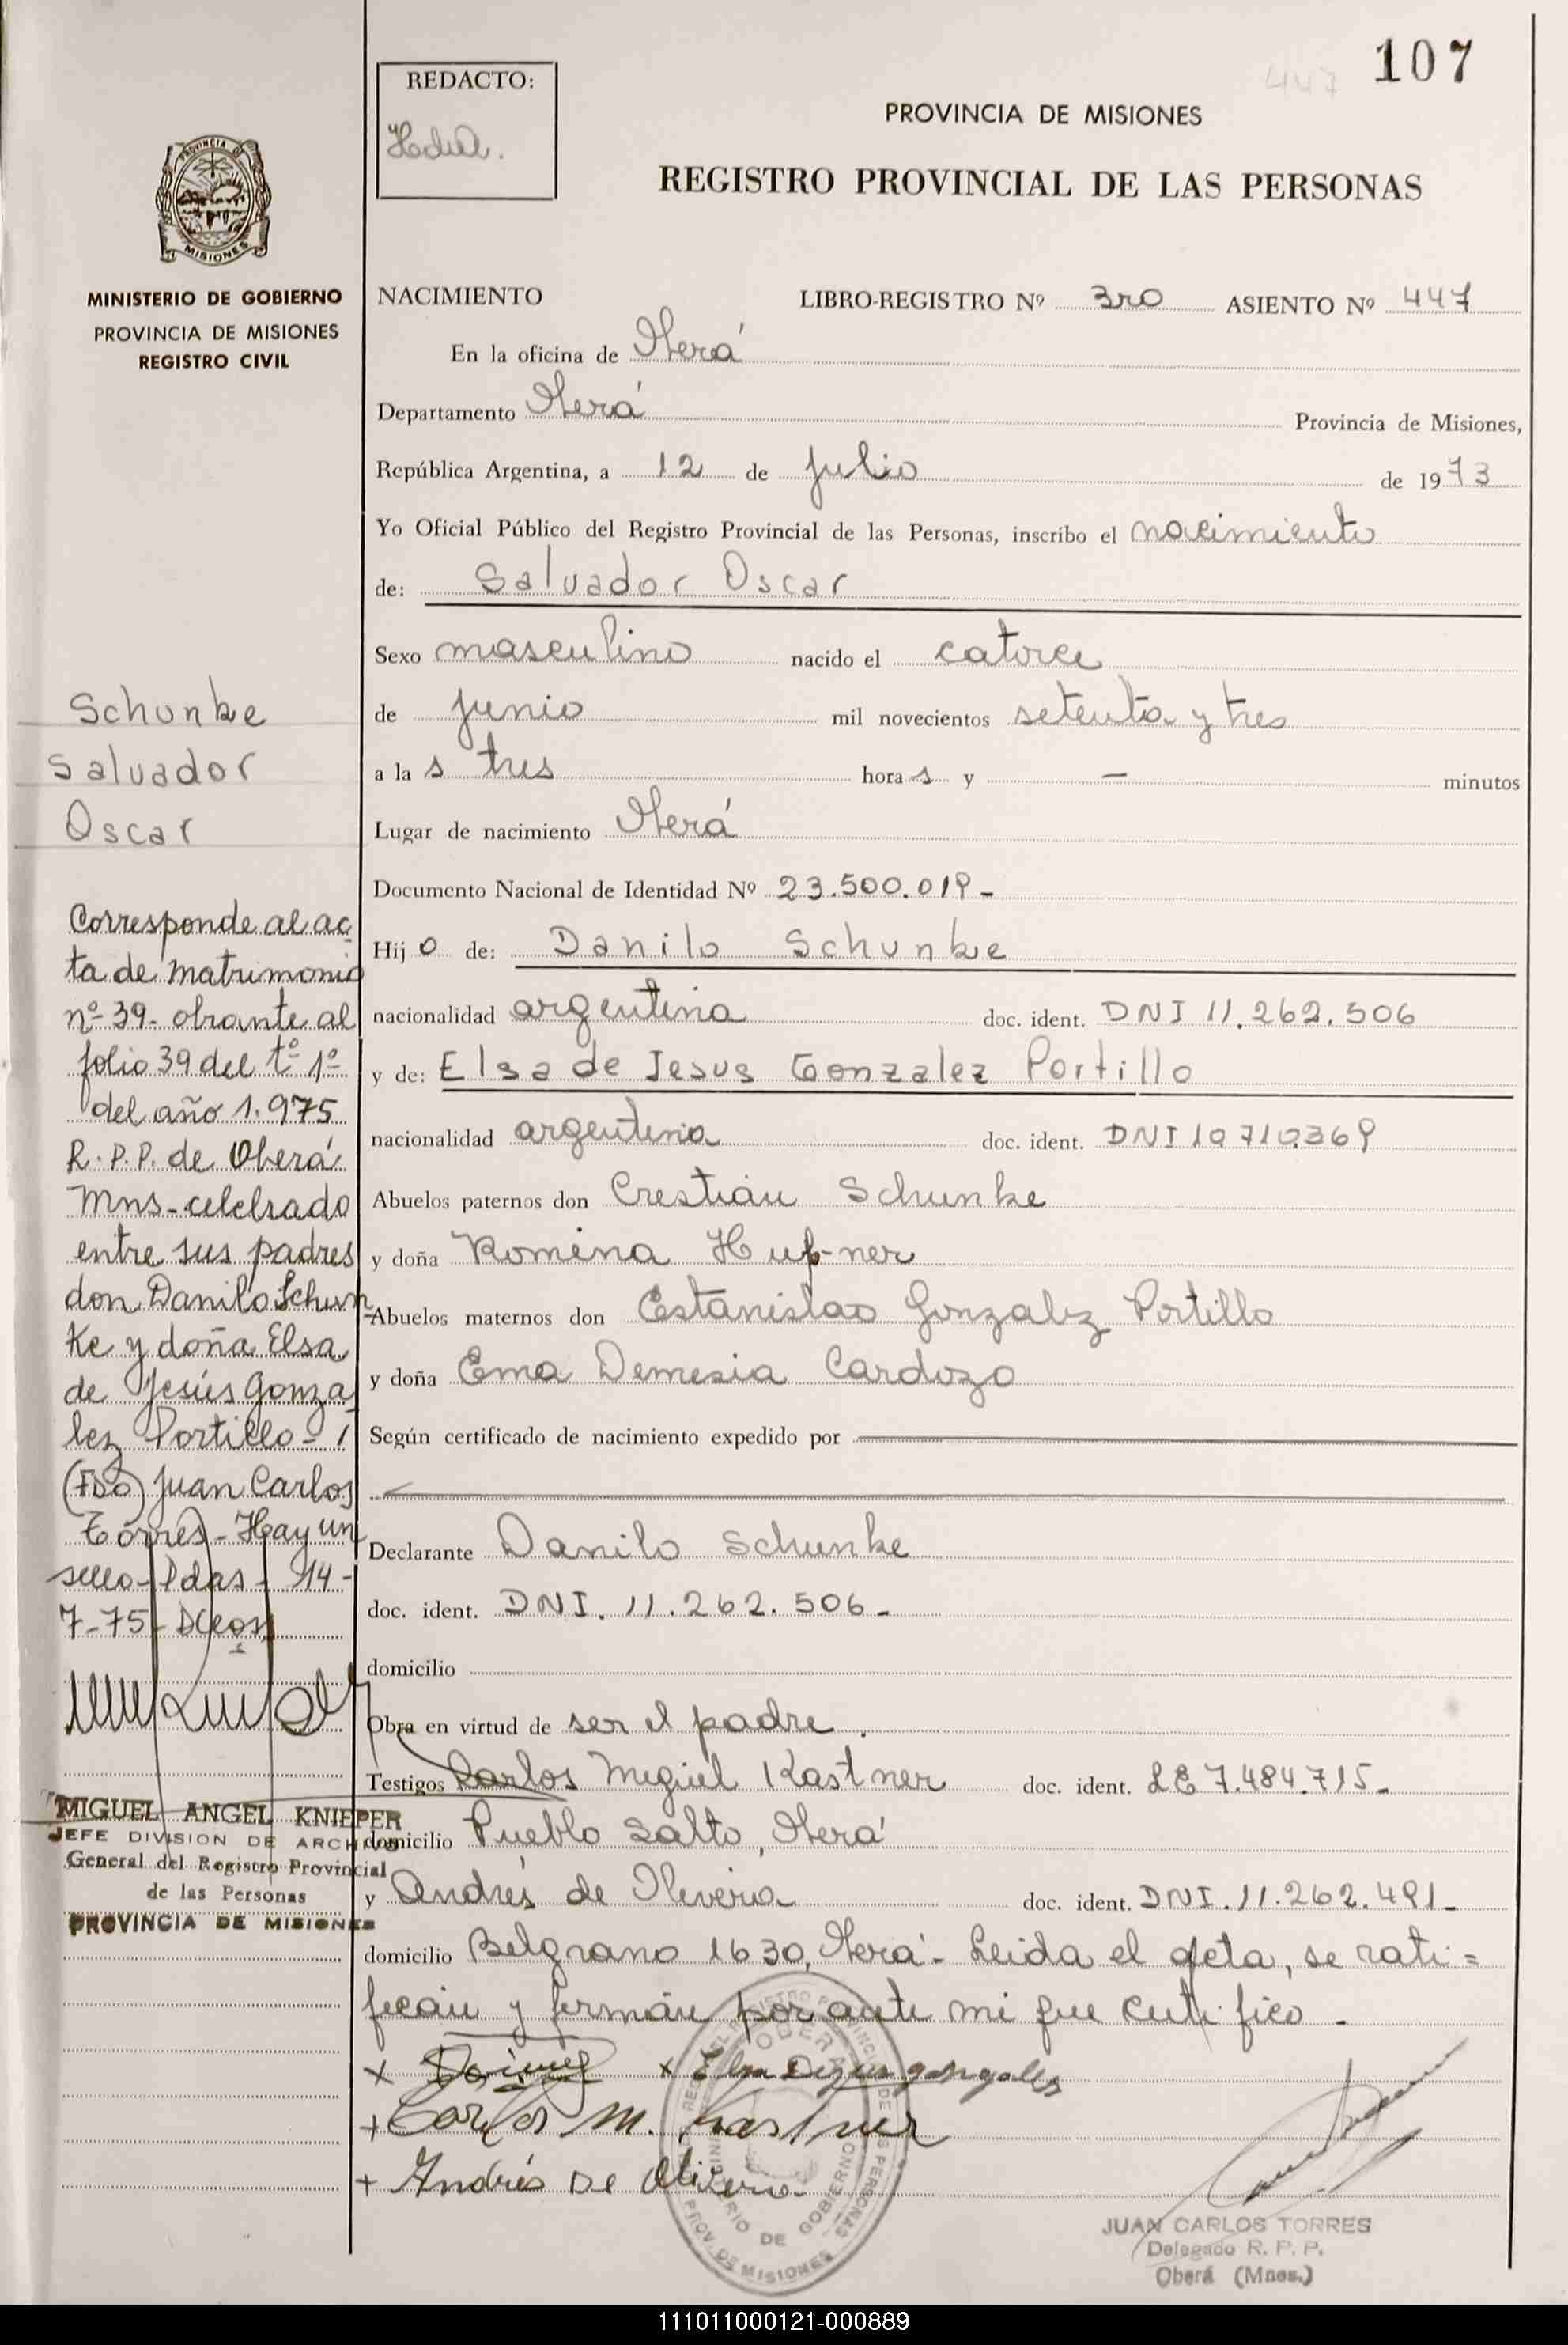 107
447
REDACTO:
PROVINCIA DE MISIONES
REGISTRO PROVINCIAL DE LAS PERSONAS
PROVINCIA DE
MISIONES
MINISTERIO DE GOBIERNO
PROVINCIA DE MISIONES
REGISTRO CIVIL
NACIMIENTO LIBRO-REGISTRO Nº 3ro ASIENTO Nº 447
En la oficina de Oberá
Departamento Oberá Provincia de Misiones,
República Argentina, a 12 de julio de 1973
Yo Oficial Público del Registro Provincial de las Personas, inscribo el nacimiento
de: Salvador Oscar
Sexo masculino nacido el catorce
de junio mil novecientos setenta y tres
a la s tres hora s y — minutos
Lugar de nacimiento Oberá
Documento Nacional de Identidad Nº 23.500.019-
Hij o de: Danilo Schunke
nacionalidad argentina doc. ident. DNI 11.262.506
y de: Elsa de Jesus Gonzalez Portillo
nacionalidad argentina doc. ident. DNI 10710369
Abuelos paternos don Crestián Schunke
y doña Romina Hufner
Abuelos maternos don Estanislao Gonzalez Portillo
y doña Ema Demesia Cardozo
Según certificado de nacimiento expedido por
Declarante Danilo Schunke
doc. ident. DNI. 11.262.506-
domicilio
Obra en virtud de ser el padre.
Testigos Carlos Miguel Kastner doc. ident. LE 7.484.715-
domicilio Pueblo Salto, Oberá
y Andrés de Oliveira doc. ident. DNI. 11.262.491-
domicilio Belgrano 1630, Oberá- Leida el acta, se rati=
fican y firman por ante mi que certifico.
x x Elsa De Jesus gonzalez
+ Carlos M. Kastner
+ Andrés De Olivera
JUAN CARLOS TORRES
Delegado R. P. P.
Oberá (Mnes.)
OBERA
MINISTERIO DE GOBIERNO
PROV. DE MISIONES
Schunke
Salvador
Oscar
Corresponde al ac
ta de matrimonio
nº 39- obrante al
folio 39 del tº 1º
del año 1.975
R.P.P. de Oberá
Mns- celebrado
entre sus padres
don Danilo Schun
ke y doña Elsa
de Jesús Gonza
lez Portillo-
(FDO) Juan Carlos
Torres- Hay un
sello- Pdas- 14-
7-75-
MIGUEL ANGEL KNIEPER
JEFE DIVISION DE ARCHIVOS
General del Registro Provincial
de las Personas
PROVINCIA DE MISIONES
111011000121-000889